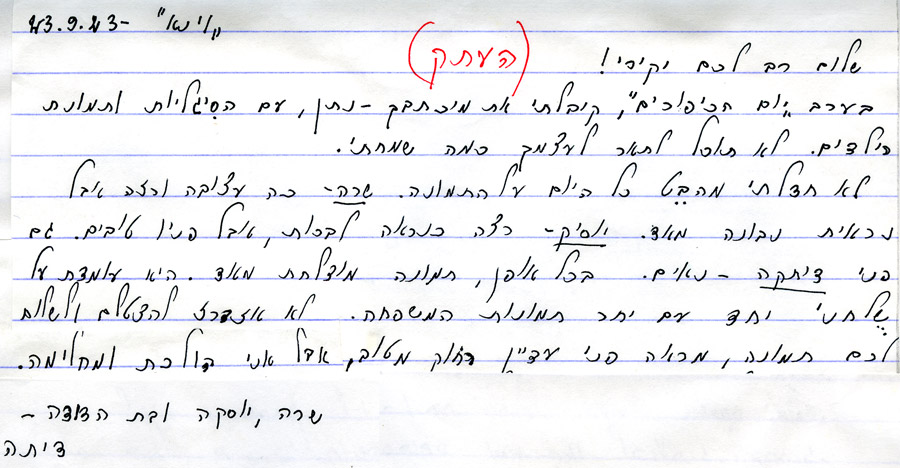 "וינא" - 23.9.23
(העתק)
שלום רב לכם יקירי!
בערב "יום הכיפורים", קיבלתי את מיכתבך - נתן, עם הסיגליות ותמונת
הילדים. לא תוכל לתאר לעצמך כמה שמחתי.
לא חדלתי מהבט כל היום על התמונה. שרה - כה עצובה ורזה אבל
נראית נבונה מאד. יוסיק - רצה כנראה לבכות, אבל פניו טובים. גם
פני דיתקה - נאים. בכל אופן, תמונה מוצלחת מאד. היא עומדת על
שלחני יחד עם יתר תמונות המשפחה. לא אזדרז להצטלם ולשלוח
לכם תמונה, מראה פני עדיין רחוק מטוב, אבל אני הולכת ומחלימה.
שרה, יוסקה ובת הדודה -
דיתה